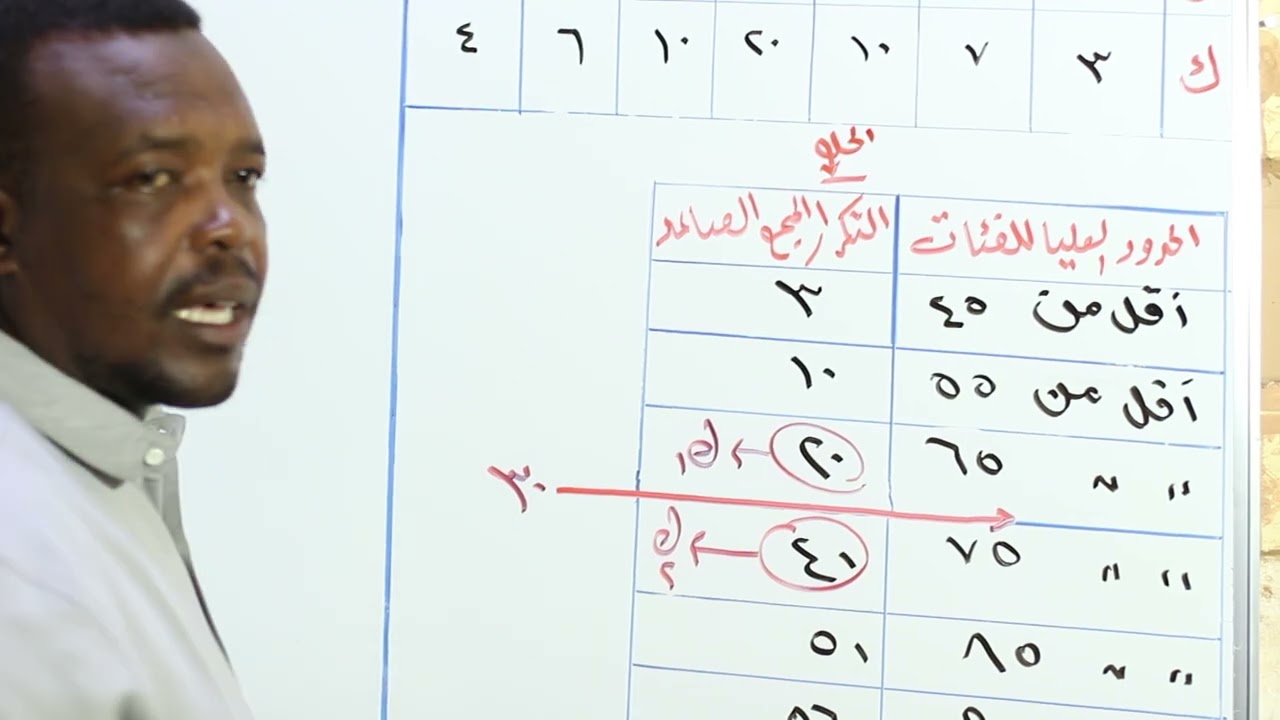 ك ٣ ٧ ١٠ ٢٠ ١٠ ٦ ٤
الحل
الحدود العليا للفئات التكرار المجمع الصاعد
أقل من ٤٥ ٣
أقل من ٥٥ ١٠
" " ٦٥ ٢٠ ← ك١
٣٠
" " ٧٥ ٤٠ ← ك٢
" " ٨٥ ٥٠